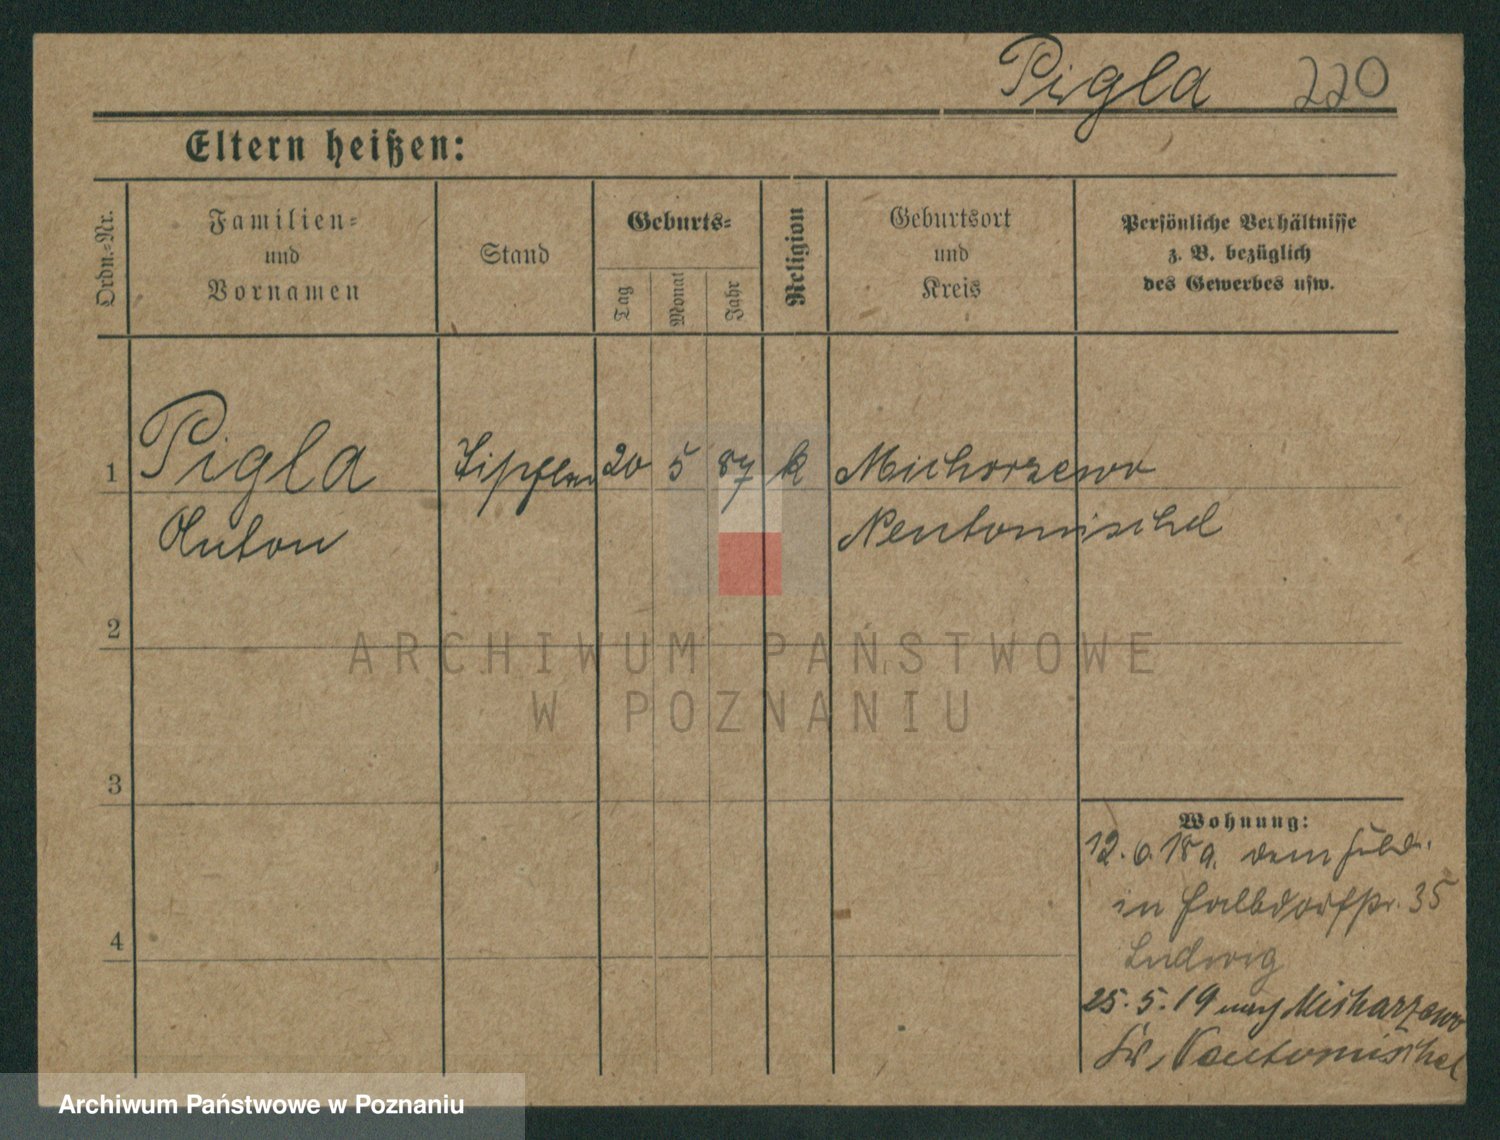 Pigla 220
Eltern heißen:
Ordn.-Nr.
Familien-
und
Vornamen
Stand
Geburts-
Tag
Monat
Jahr
Religion
Geburtsort
und
Kreis
Persönliche Verhältnisse
z. B. bezüglich
des Gewerbes usw.
1 Pigla 20 5 87 k Michorzewo
Anton Neutomischel
2
3
4
Wohnung:
12. 6. 18 a. dem Felde.
in 35
Ludwig
25. 5. 19 nach Michorzewo
Kr. Neutomischel
ARCHIWUM PAŃSTWOWE
W POZNANIU
Archiwum Państwowe w Poznaniu